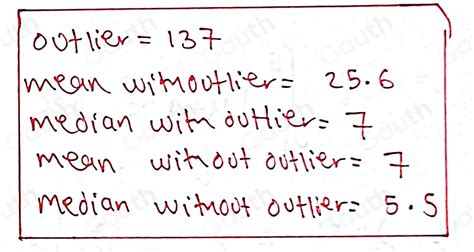 outlier = 137
mean withoutlier = 25.6
median with outlier = 7
mean without outlier = 7
median without outlier = 5.5